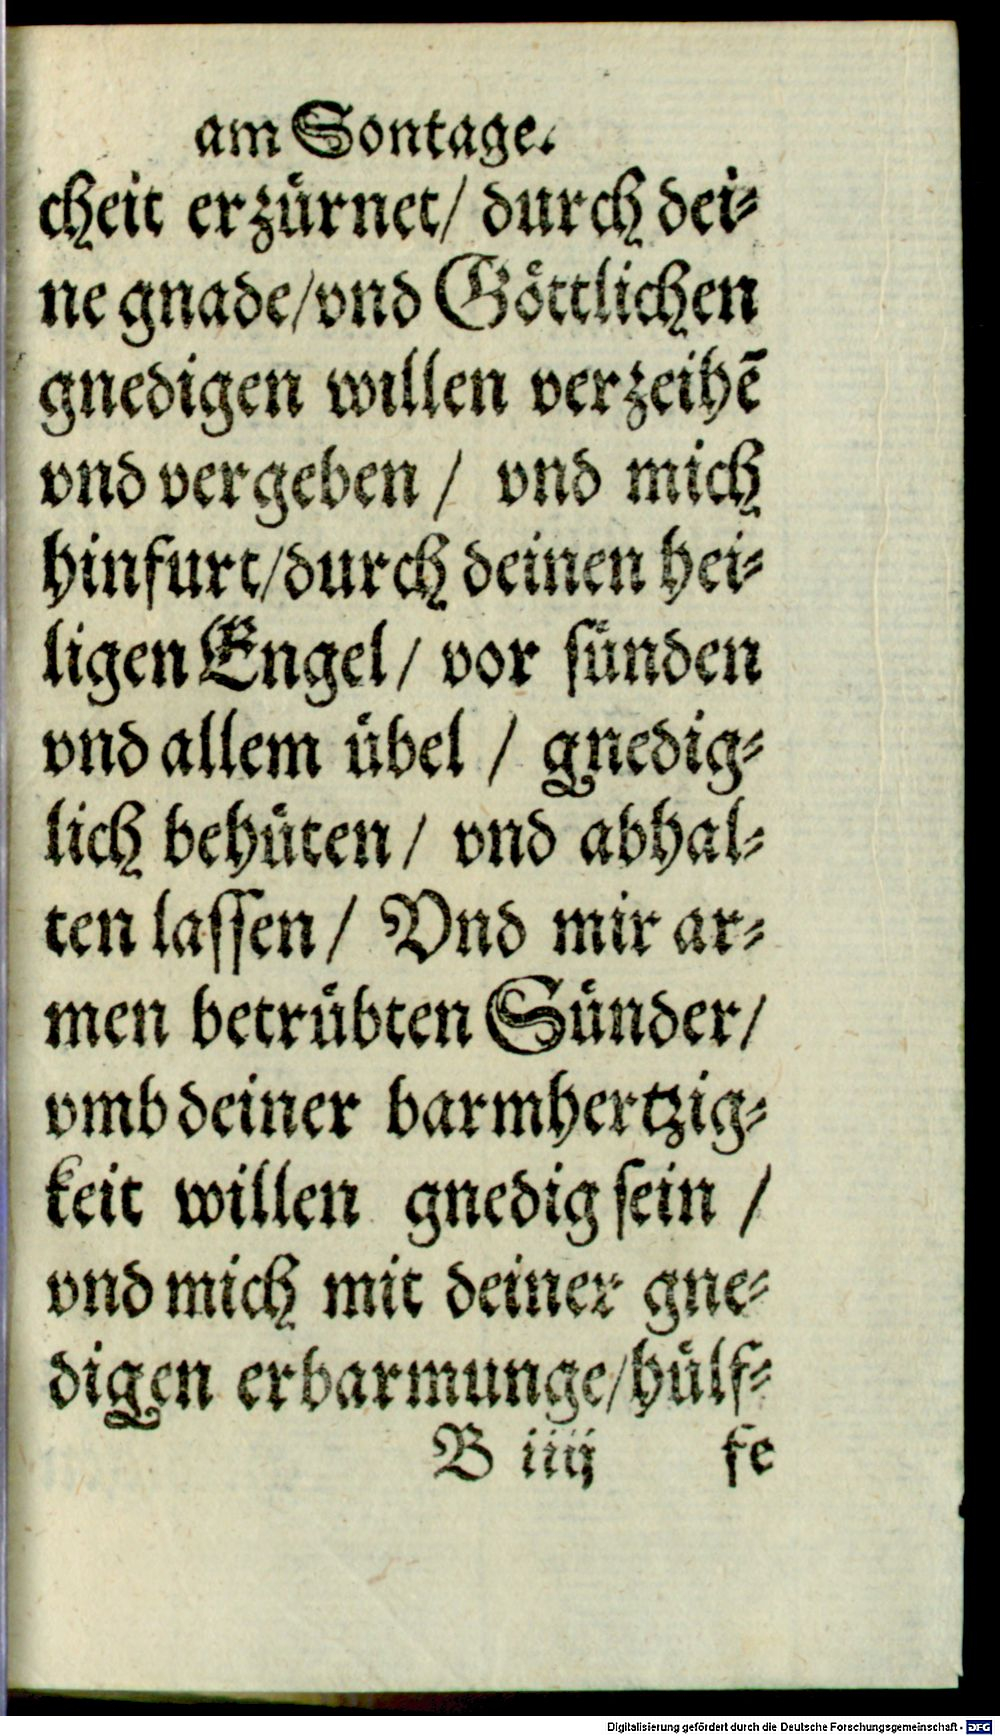 am Sontage.
cheit erzürnet/ durch dei⸗
ne gnade/vnd Göttlichen
gnedigen willen verzeihē
vnd vergeben / vnd mich
hinfurt/durch deinen hei⸗
ligen Engel/ vor sünden
vnd allem übel / gnedig⸗
lich behüten/ vnd abhal⸗
ten lassen/ Vnd mir ar⸗
men betrübten Sünder/
vmb deiner barmhertzig⸗
keit willen gnedig sein /
vnd mich mit deiner gne⸗
digen erbarmunge/hülf⸗
B iiij fe
Digitalisierung gefördert durch die Deutsche Forschungsgemeinschaft - DFG